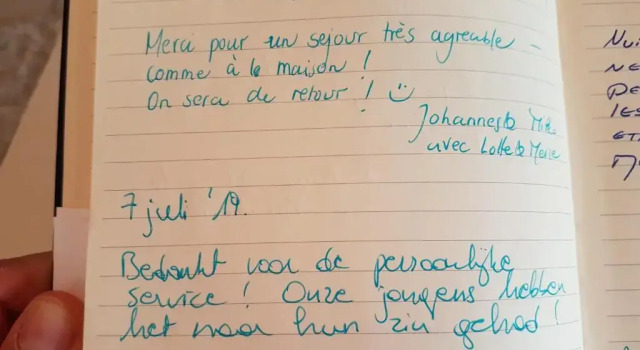 Merci pour un sejour très agreable –
comme à la maison !
On sera de retour ! ☺
Johannes &
avec Lotte & Merle
7 juli '19.
Bedankt voor de persoonlijke
service ! Onze jongens hebben
het naar hun zin gehad !